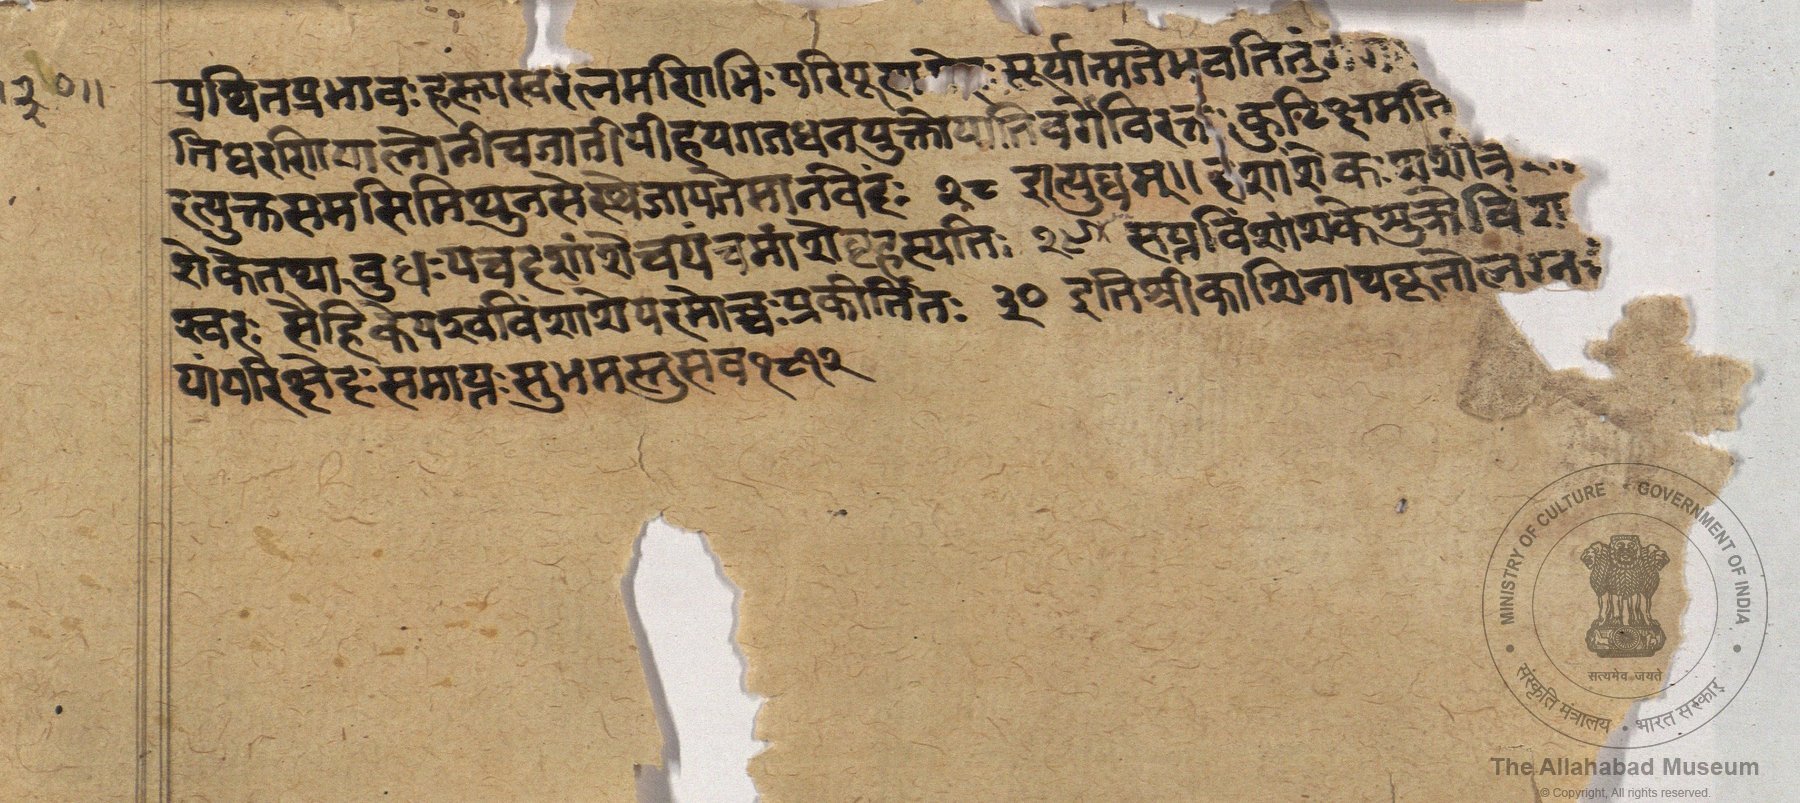 ३०॥
प्रथितप्रभावः हस्त्यस्वरत्नमणिभिः परिपूर्ण सूर्यात्मजेभवतितुं
तिधरणिपालो नीचजातीपीहयगजधनयुक्तो वर्गेविरक्तः कुटिक्षमति
रत्युक्तसमसिमिथुनसंस्थेजायतेमानवेंद्रः २८ इत्युच्चम्॥ दशांशेकः शशीत्र
शेकेतथा बुधःपंचदशांशेचपंचमांशेबृहस्पतिः २९ सप्तविंशांशकेशुक्रोविंश
स्वरः सैंहिकेयस्वविंशांशेपरमोच्चःप्रकीर्तितः ३० इतिश्रीकाशिनाथकृतौलग्न
यांपरिक्षेदःसमाप्तःसुभमस्तुसव१८१२
MINISTRY OF CULTURE • GOVERNMENT OF INDIA
सत्यमेव जयते
संस्कृति मंत्रालय • भारत सरकार
The Allahabad Museum
© Copyright, All rights reserved.